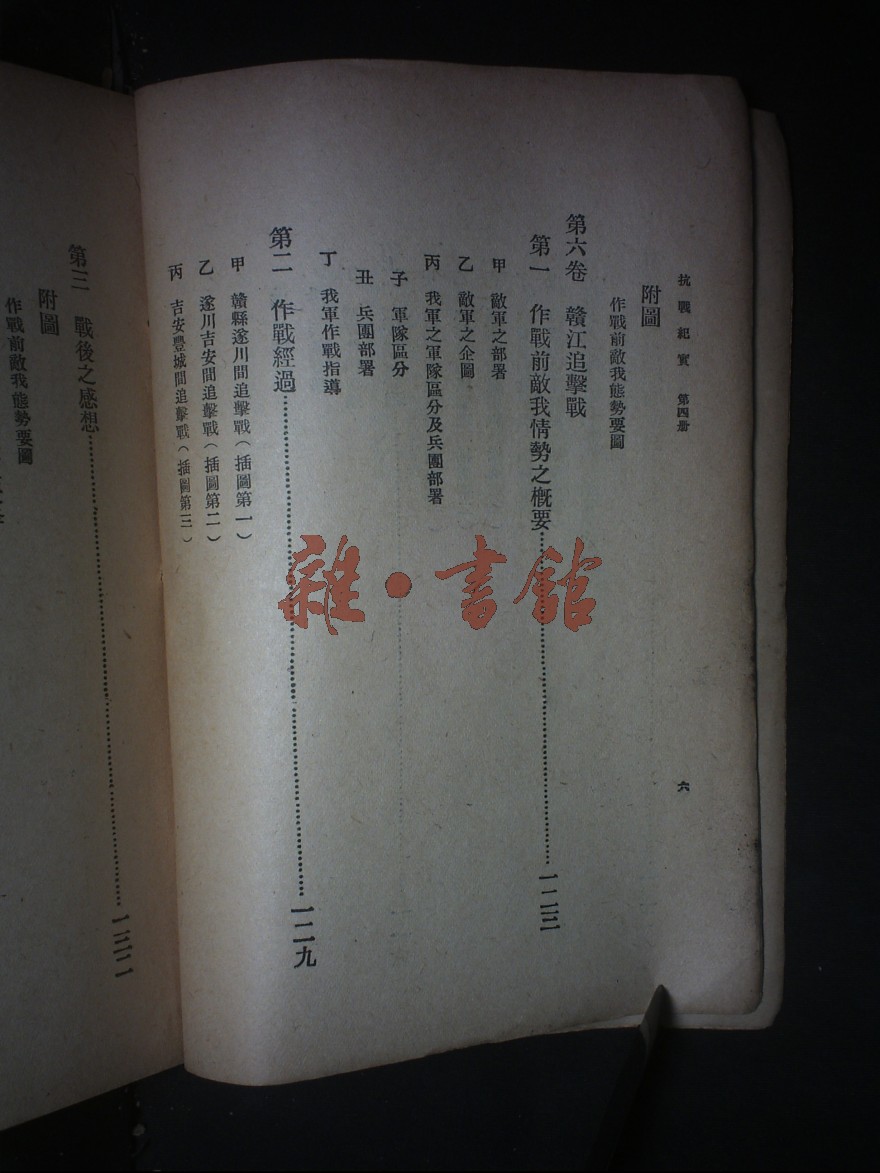 抗戰紀實　第四册
六
附圖
作戰前敵我態勢要圖
第六卷　贛江追擊戰
第一　作戰前敵我情勢之概要………一二三
甲　敵軍之部署
乙　敵軍之企圖
丙　我軍之軍隊區分及兵團部署
子　軍隊區分
丑　兵團部署
丁　我軍作戰指導
第二　作戰經過………一二九
甲　贛縣遂川間追擊戰（插圖第一）
乙　遂川吉安間追擊戰（插圖第二）
丙　吉安豐城間追擊戰（插圖第三）
第三　戰後之感想………
附圖
作戰前敵我態勢要圖
雜·書館